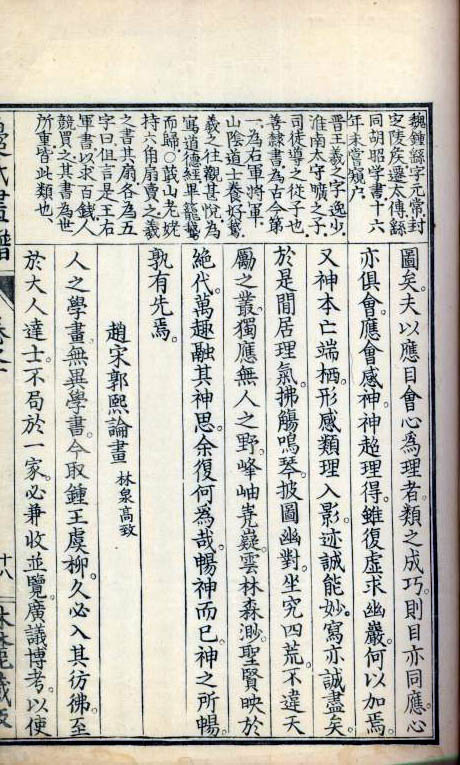 魏鍾繇字元常封
㝎陵矦遷太傅繇
同胡昭学書十六
年未嘗窺户
晋王羲之字逸少
淮南太守曠之子
司徒導之從子也
善隷書為古今第
一為右軍將軍
山陰道士養好鵞
羲之往觀甚悦為
寫道德経畢籠鵞
而歸○蕺山老姥
持六角扇賣之羲
之書其扇各為五
字曰但言是王右
軍書以求百錢人
競買之其書為世
所重皆此類也、
圖矣。夫以應目會心為理者。類之成巧。則目亦同應。心
亦俱會。應會感神。神超理得。雖復虚求幽巖。何以加焉。
又神本亡端。栖形感類。理入影迹。誠能妙寫。亦誠盡矣。
於是閒居理氣。拂觴鳴琴。披圖幽對。坐究四荒。不違天
勵之叢。獨應無人之野。峰岫嶤嶷。雲林森渺。聖賢映於
絶代。萬趣融其神思。余復何為哉。暢神而已。神之所暢。
孰有先焉。
趙宋郭熙論畫 林泉高致
人之學畫。無異學書。今取鍾王虞柳。久必入其彷彿。至
於大人達士。不局於一家。必兼收並覽。廣議博考。以使
十八